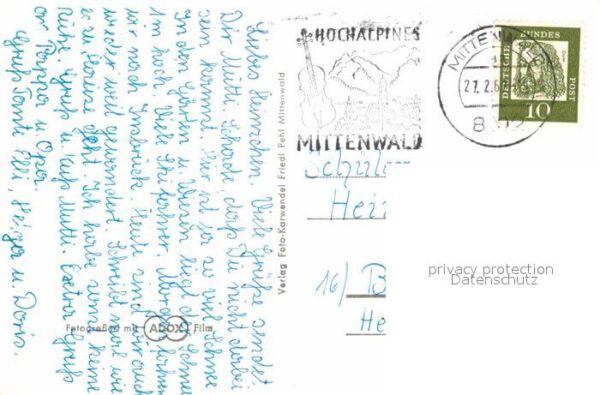 Liebes Heinzchen. Viele Grüße sendet
Dir Mutti. Schade, daß Du nicht dabei
sein kannst. Hier ist ja so viel Schnee
In den Gärten u Wiesen liegt der Schnee
1m hoch. Viele Skifahrer. Morgen fahren
wir nach Innsbruck. Heute sind wir
wieder viel gewandert. Schreibt mal wie
es zu Hause geht. Ich habe sonst keine
Ruhe. Gruß u Kuß Mutti. Extra Gruß
an Pappa u Opa.
Gruß Tante Elli, Helga u. Doris.
Fotografiert mit ADOX Film
Verlag Foto-Karwendel Friedl Pehl Mittenwald
HOCHALPINES
MITTENWALD
MITTENWALD
27.2.6
8102
DEUTSCHE BUNDESPOST
10
Schül
Hein
16/ B
He
privacy protection
Datenschutz